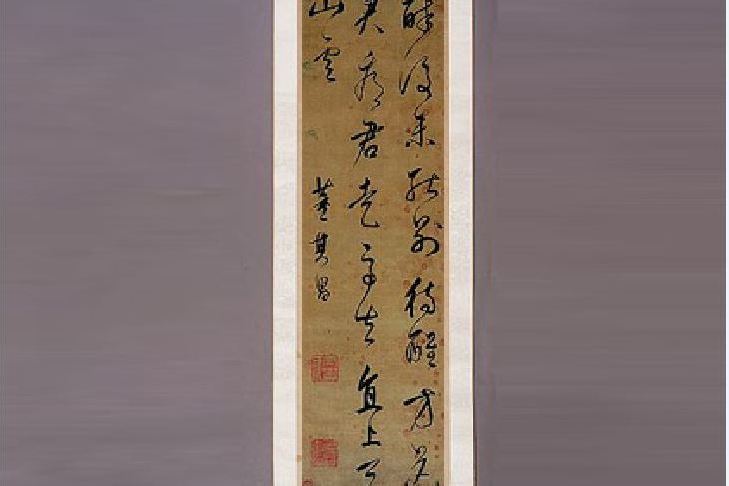 醉後未能別待醒方送
君看君走馬去直上天
山雲
董其昌